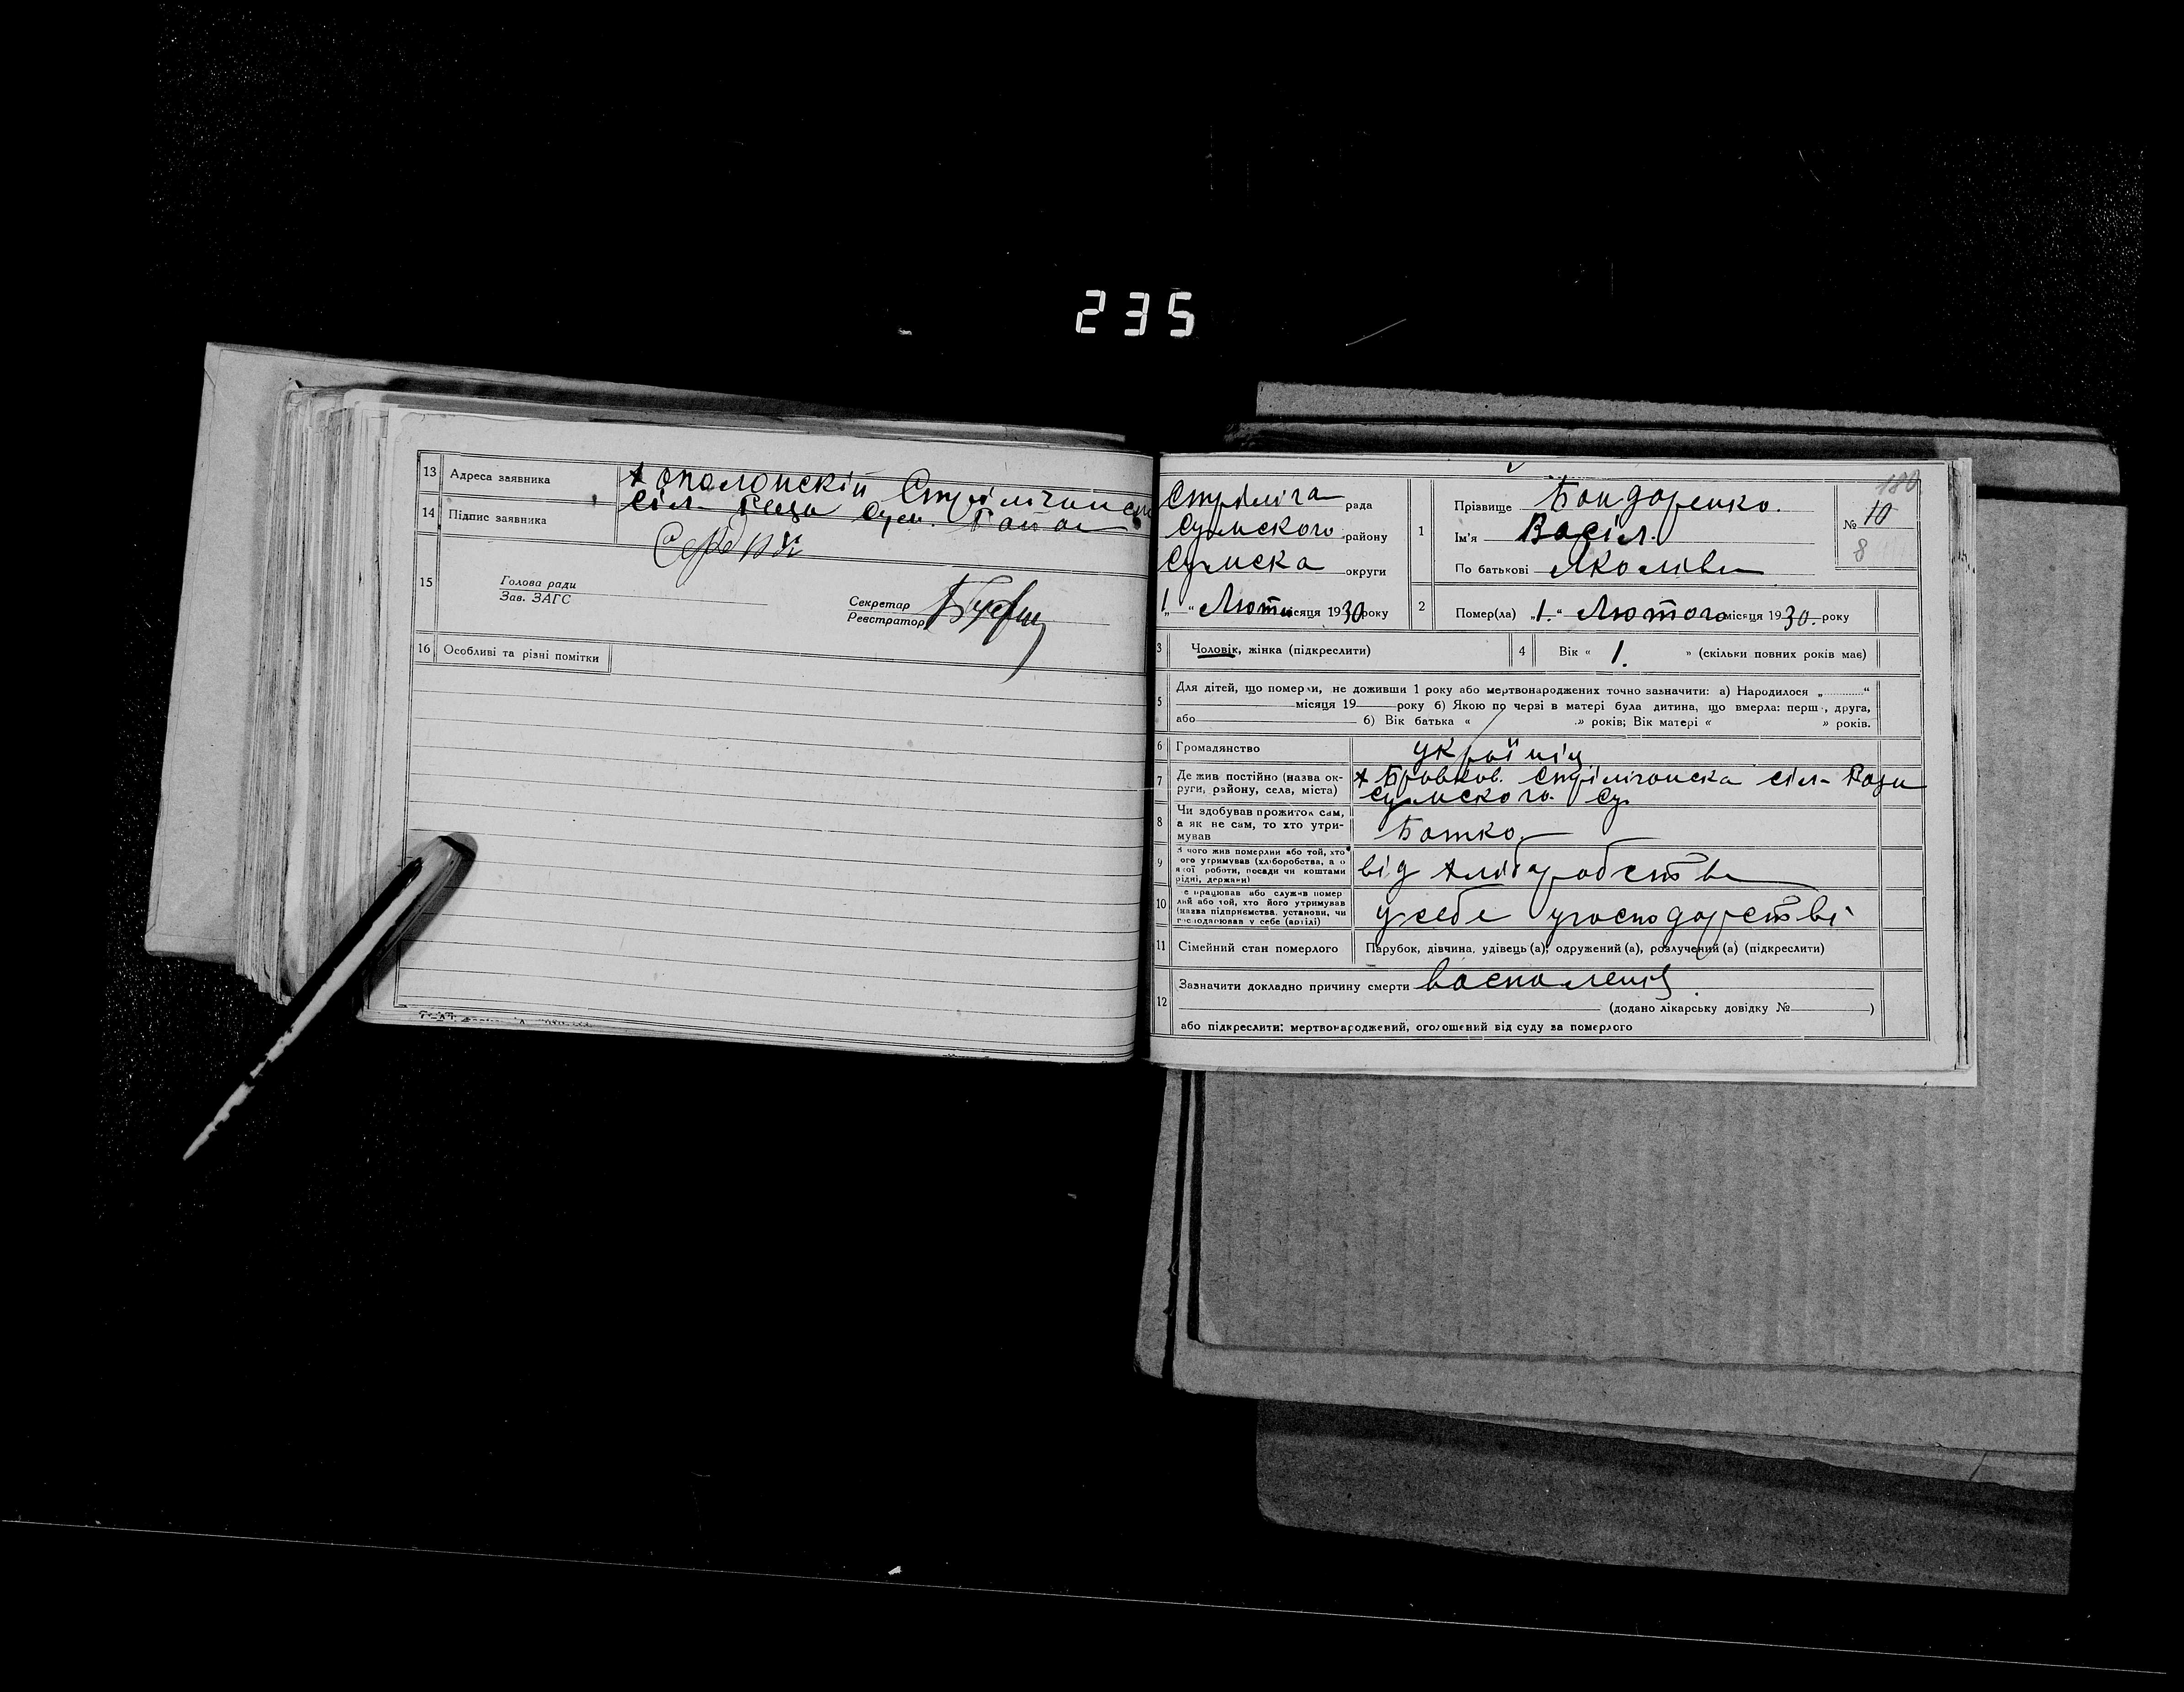 235
13 Адреса заявника
14 Підпис заявника
15 Голова ради
Зав. ЗАГС
Секретар
Реєстратор
16 Особливі та різні помітки
180
Стріліча рада
Сумского району
Сумска округи
1 " Люти місяця 1930 року
1 Прізвище Бондаренко.
Ім'я Васіл.
По батькові
№ 10
8
2 Помер(ла) „1." Лютого місяця 1930. року
3 Чоловік, жінка (підкреслити)
4 Вік « 1. » (скільки повних років має)
5 Для дітей, що померли, не доживши 1 року або мертвонароджених точно зазначити: а) Народилося „ "
місяця 19 року б) Якою по черзі в матері була дитина, що вмерла: перша, друга,
або б) Вік батька « » років; Вік матері « » років.
6 Громадянство україніц
7 Де жив постійно (назва ок-
руги, району, села, міста)
Сумского. Су
8 Чи здобував прожиток сам,
а як не сам, то хто утри-
мував
Батко
9 З чого жив померлий або той, хто
його утримував (хліборобства, а о
якої роботи, посади чи коштами
рідні, держави)
від хліборобства
10 Де працював або служив помер
лий або той, хто його утримував
(назва підприємства, установи, чи
господарював у себе (артілі)
усебе угосподарстві
11 Сімейний стан померлого
Парубок, дівчина, удівець (а), одружений (а), розлучений (а) (підкреслити)
12 Зазначити докладно причину смерти
(додано лікарську довідку № )
або підкреслити: мертвонароджений, оголошений від суду за померлого